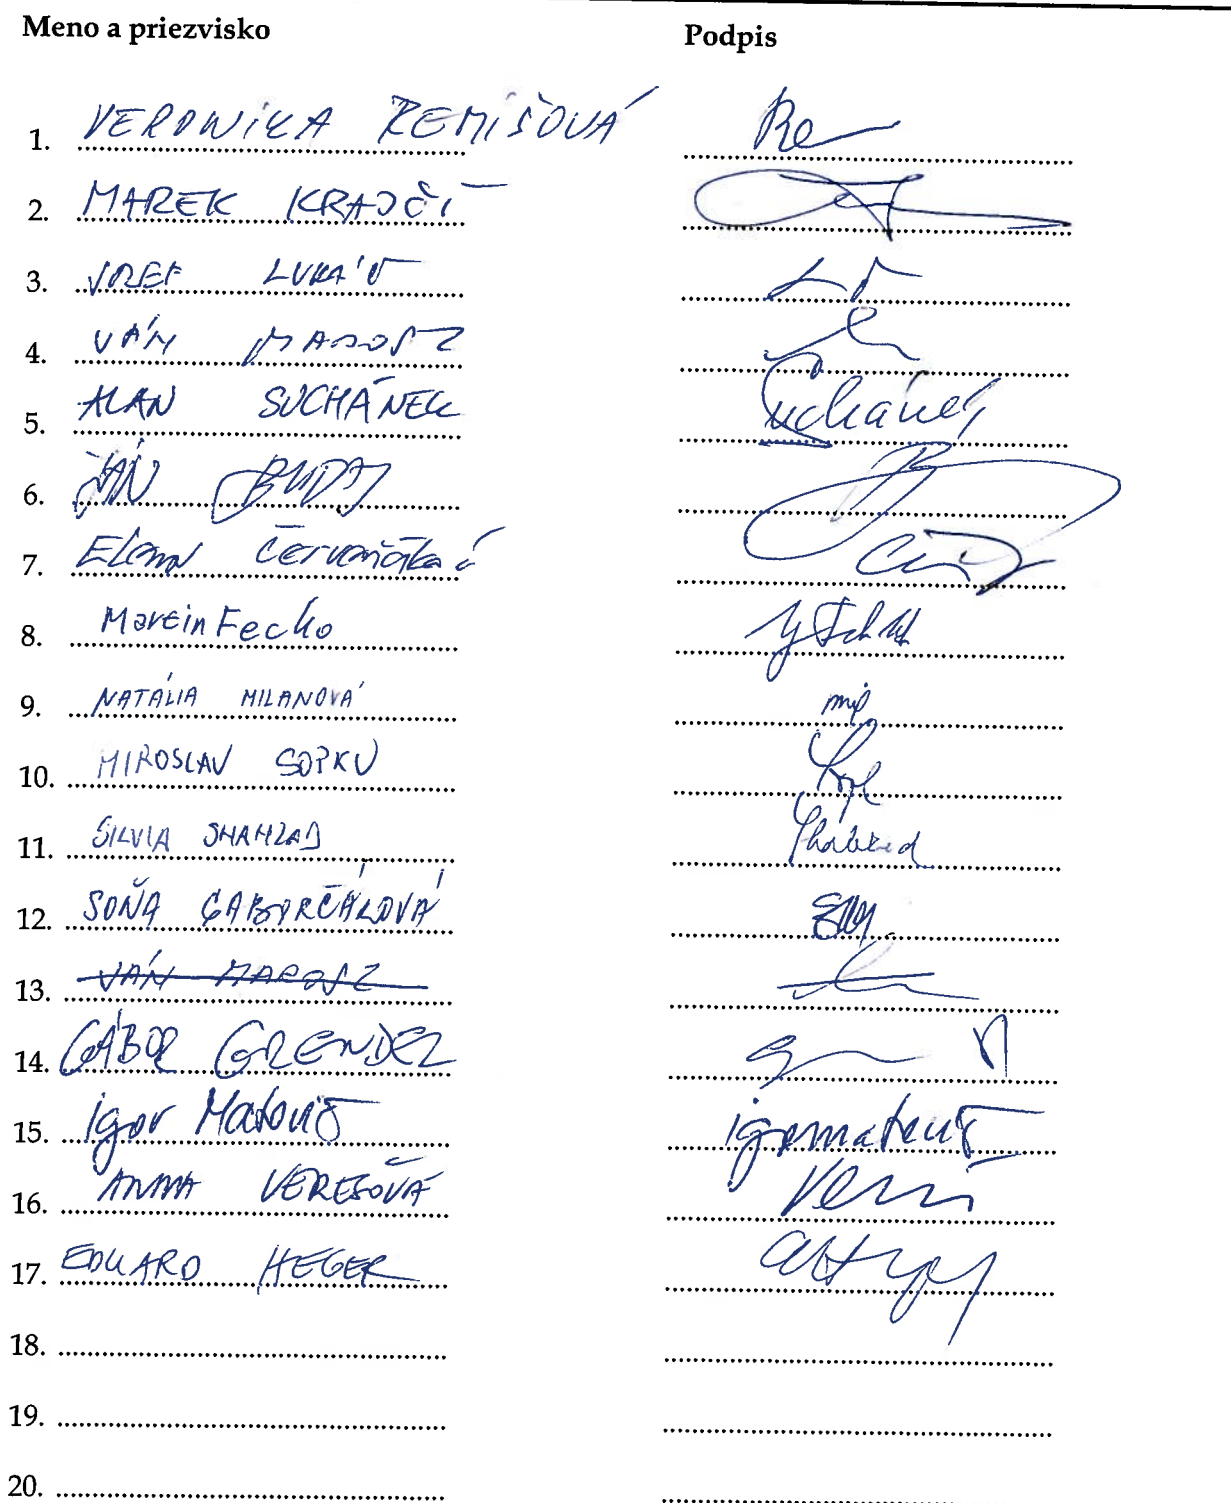 Meno a priezvisko Podpis
1. VERONIKA REMIŠOVÁ Re
2. MAREK KRAJČÍ
3. JOZEF LUKÁČ
4. JÁN MAROSZ
5. ALAN SUCHÁNEK Suchánek
6. JÁN BUDAJ
7. Elena Červeňáková
8. Martin Fecko
9. NATÁLIA MILANOVÁ mil
10. MIROSLAV SOPKO
11. SILVIA SHAHZAD Shahzad
12. SOŇA GABORČÁKOVÁ
13. JÁN MAROSZ
14. GÁBOR GRENDEL
15. Igor Matovič igormatovič
16. ANNA VEREŠOVÁ
17. EDUARD HEGER
18.
19.
20.